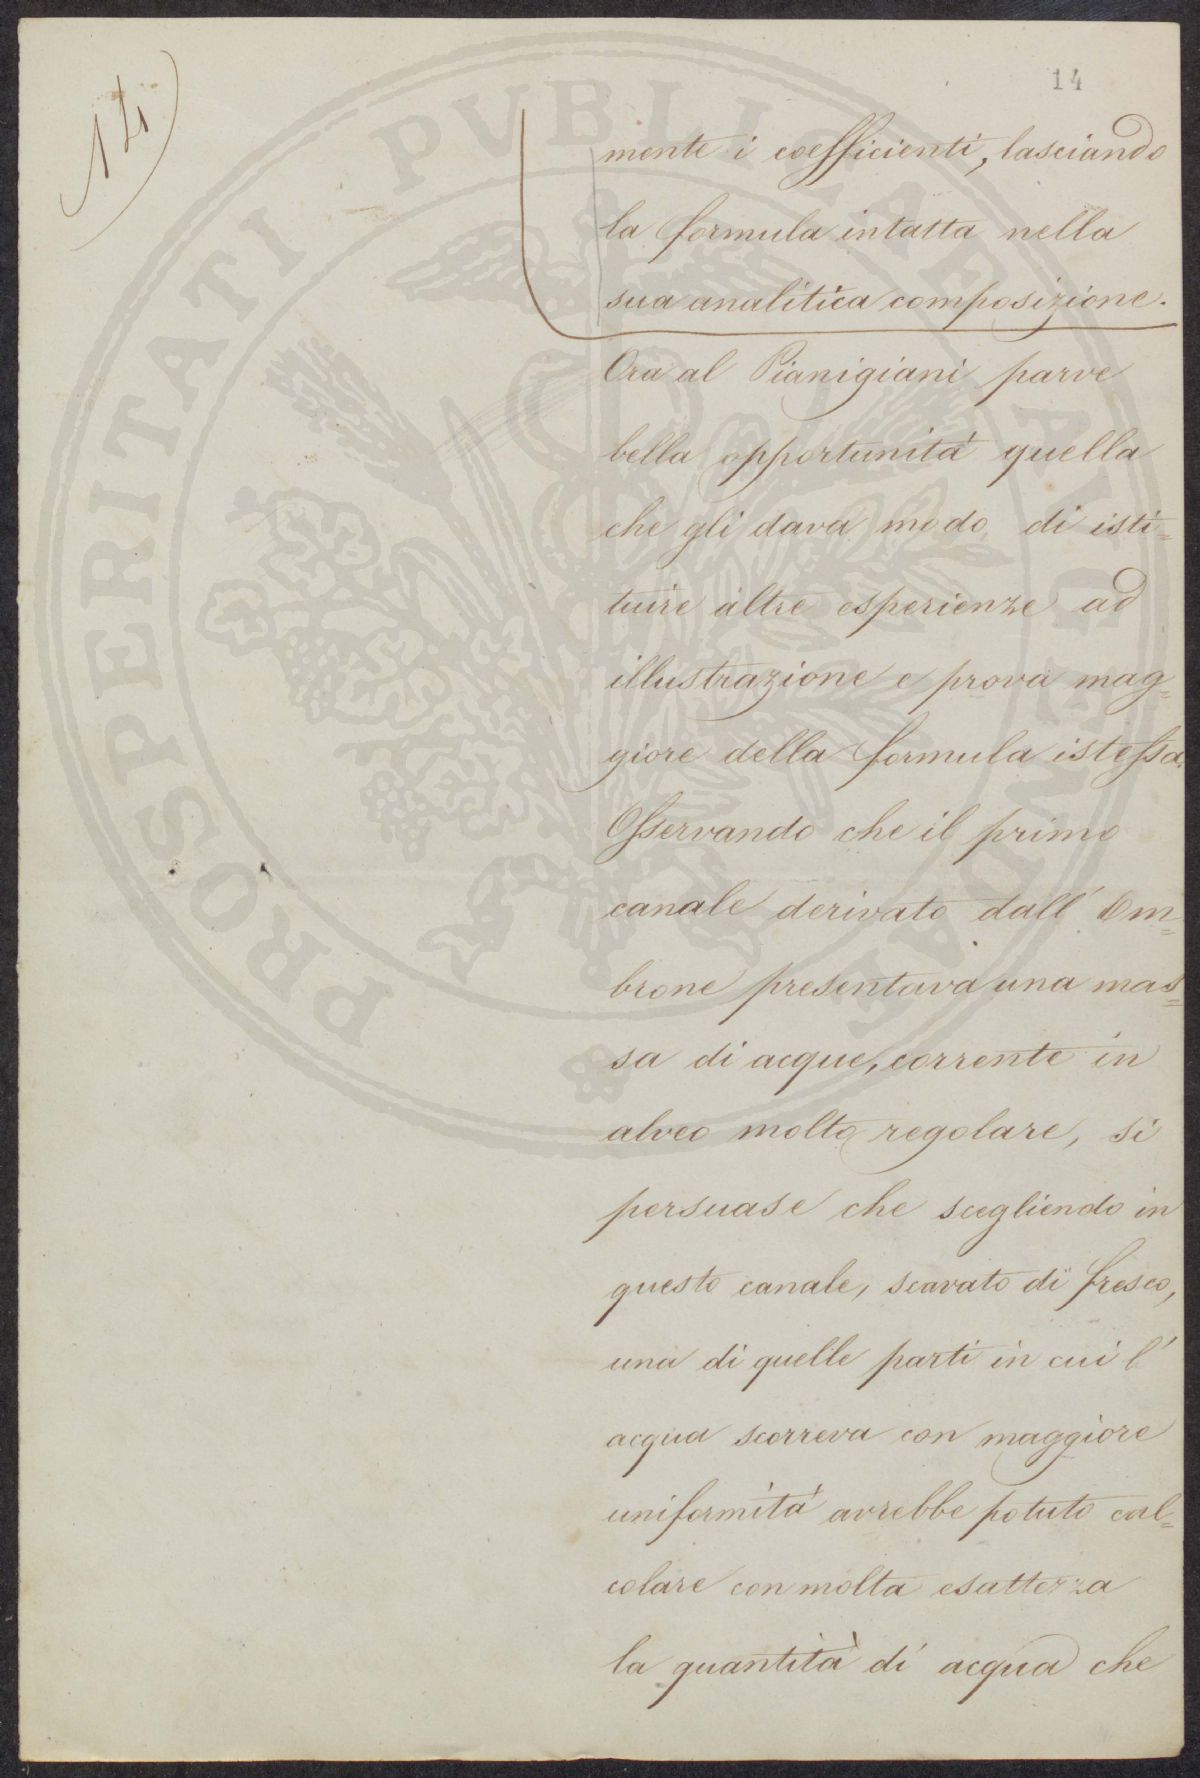 14)
14
mente i coefficienti, lasciando
la formula intatta nella
sua analitica composizione.
Ora al Pianigiani parve
bella opportunità quella
che gli dava modo di isti=
tuire altre esperienze ad
illustrazione e prova mag=
giore della formula istessa.
Osservando che il primo
canale derivato dall' Om=
brone presentava una mas=
sa di acque, corrente in
alveo molto regolare, si
persuase che scegliendo in
questo canale, scavato di fresco,
una di quelle parti in cui l'
acqua scorreva con maggiore
uniformità avrebbe potuto cal=
colare con molta esattezza
la quantità di acqua che
PROSPERITATI PVBLICAE AVGENDAE